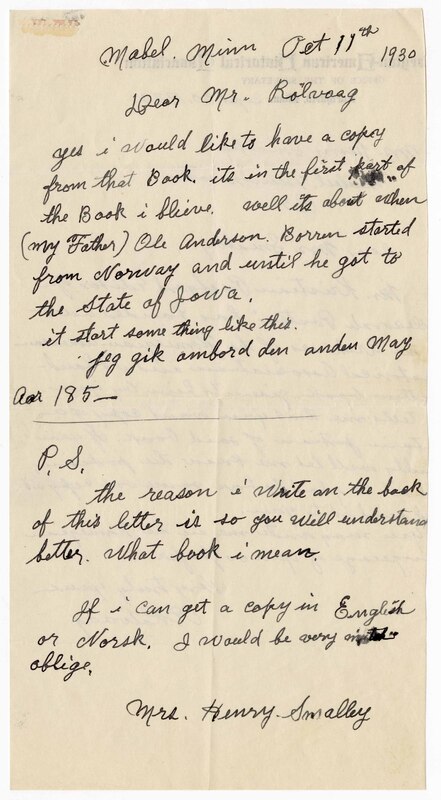 Mabel. Minn Oct 11th 1930
Dear Mr. Rölvaag
yes i would like to have a copy
from that Book. its in the first part of
the Book i blieve. well its about when
(my Father) Ole Anderson. Borren started
from Norway and until he got to
the State of Iowa.
it start some thing like this.
jeg gik ambord den anden May
Aar 185—
P.S.
the reason i write on the back
of this letter is so you will understand
better. What book i mean.
If i can get a copy in English
or Norsk. I would be very
oblige.
Mrs. Henry Smalley